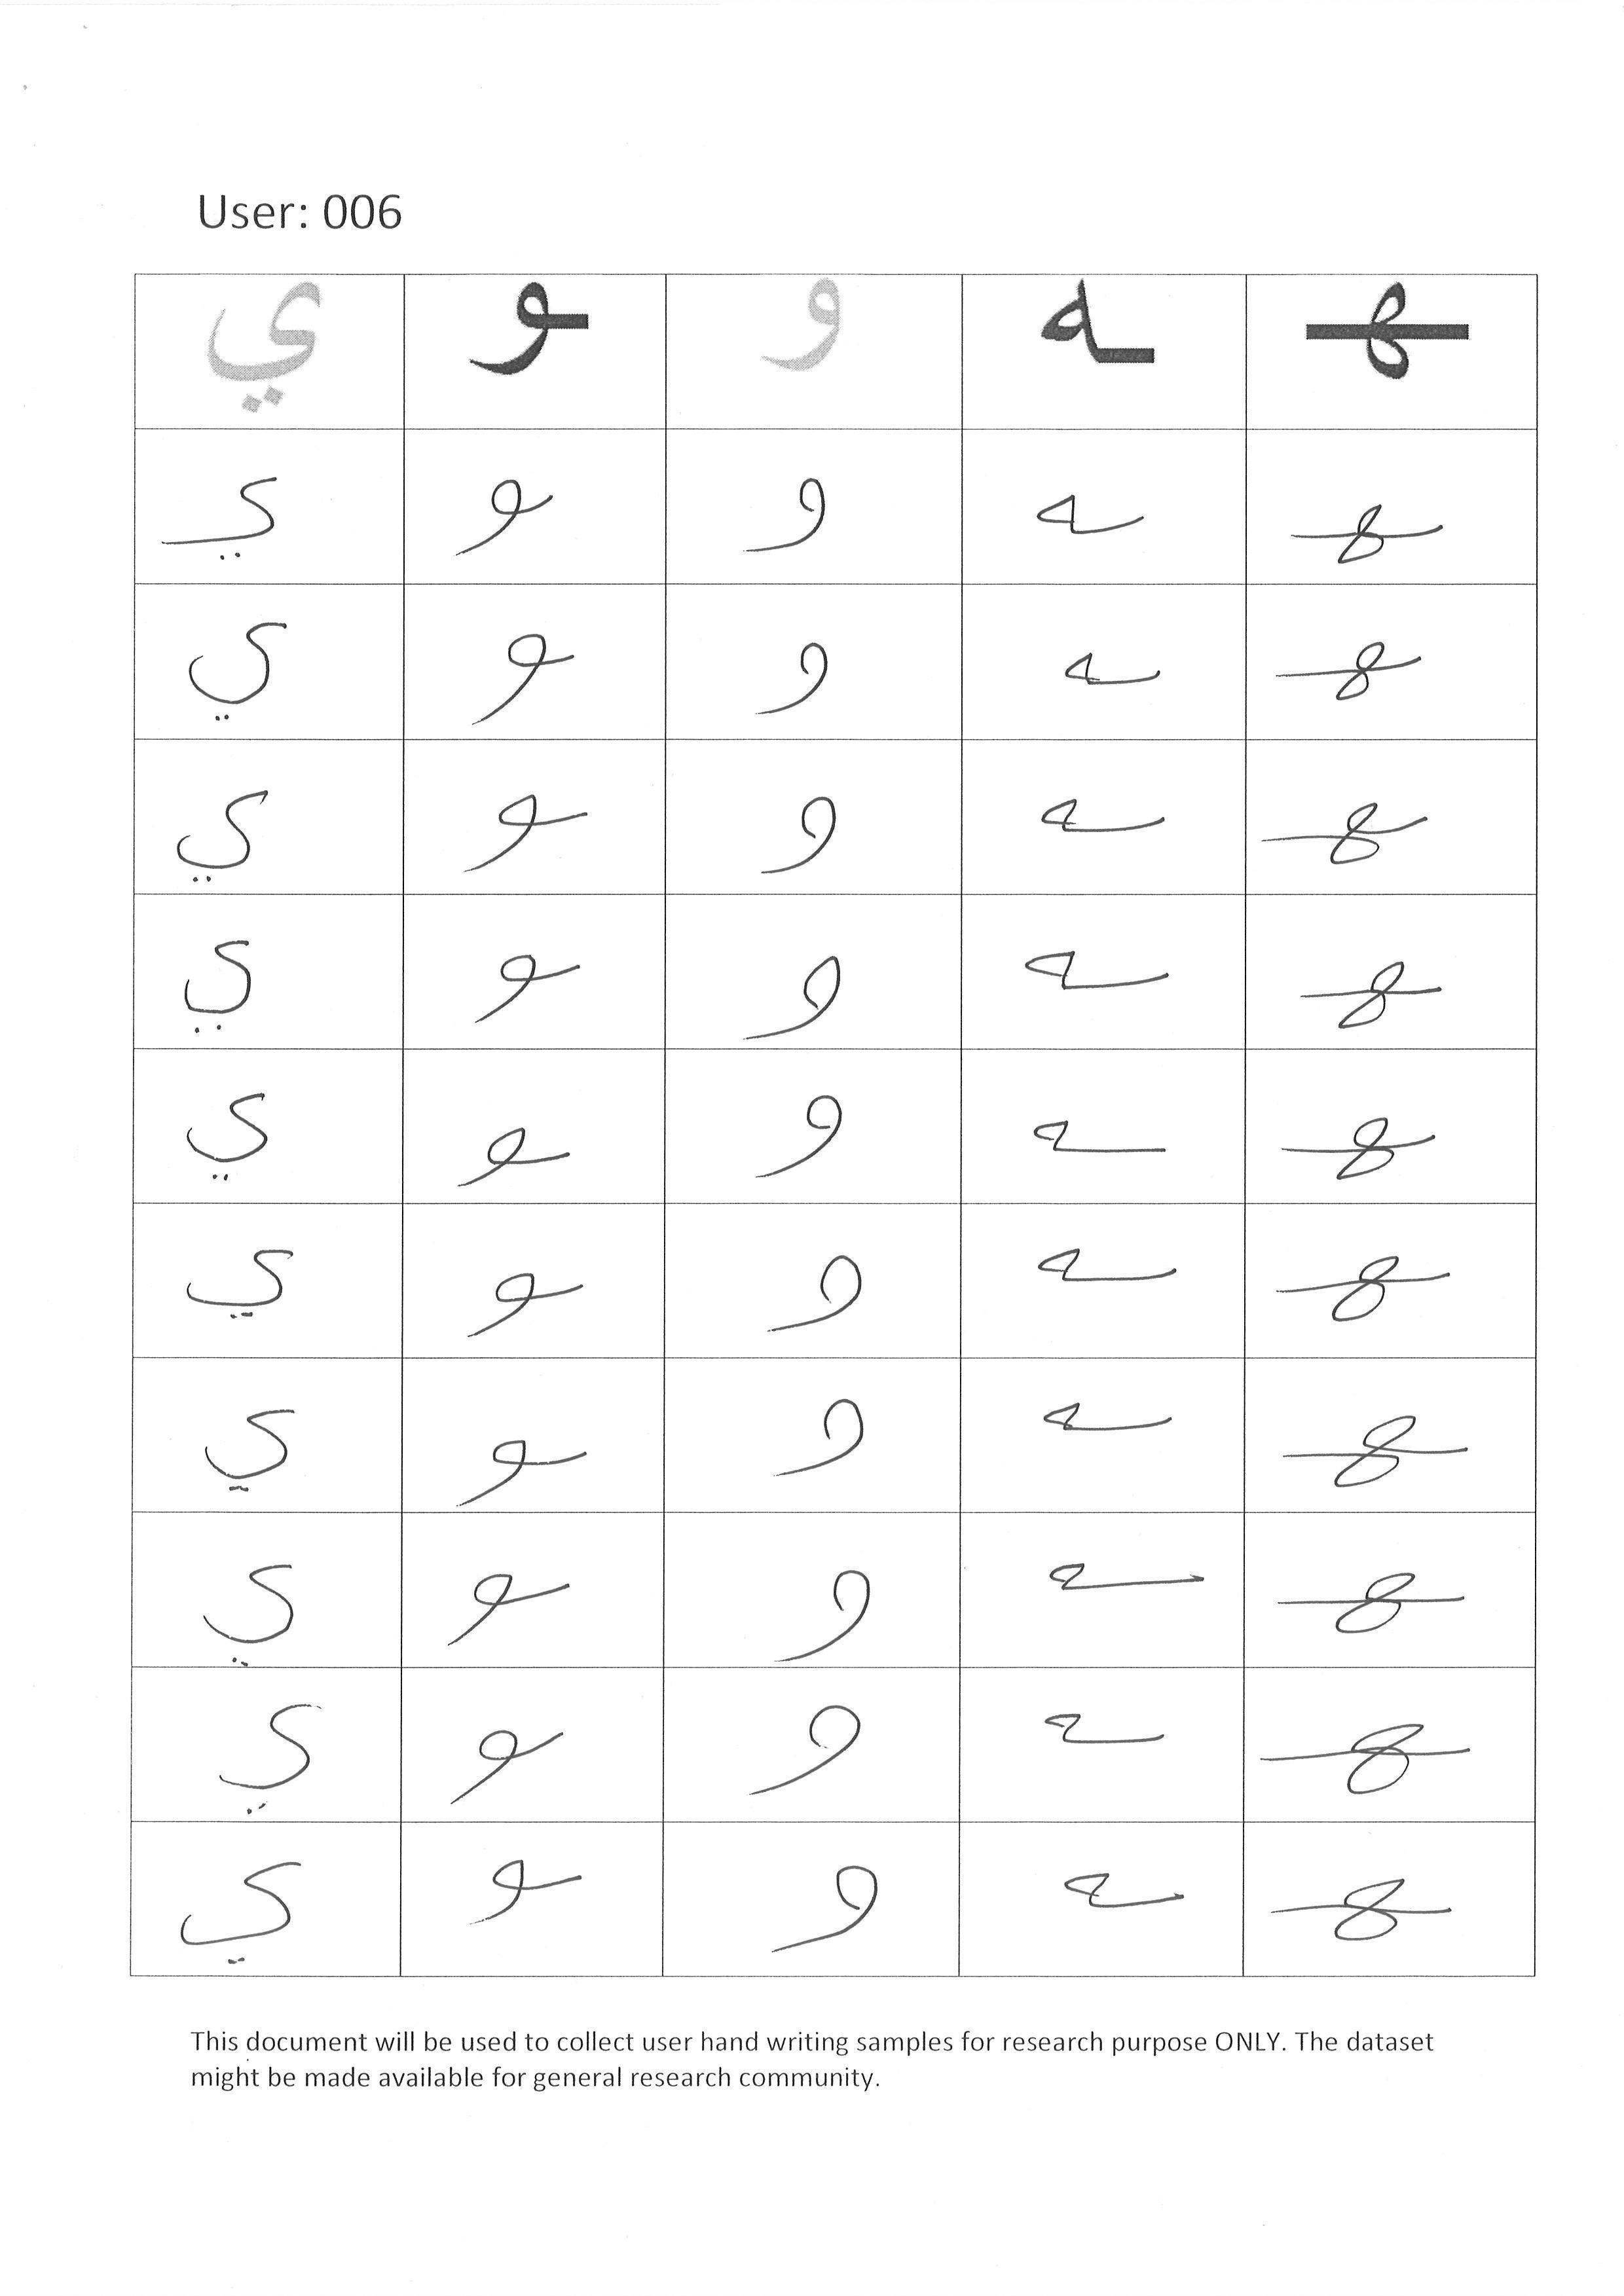 User: 006
ي ـو و ـه ـهـ
ي ـو و ـه ـهـ
ي ـو و ـه ـهـ
ي ـو و ـه ـهـ
ي ـو و ـه ـهـ
ي ـو و ـه ـهـ
ي ـو و ـه ـهـ
ي ـو و ـه ـهـ
ي ـو و ـه ـهـ
ي ـو و ـه ـهـ
ي ـو و ـه ـهـ
This document will be used to collect user hand writing samples for research purpose ONLY. The dataset
might be made available for general research community.